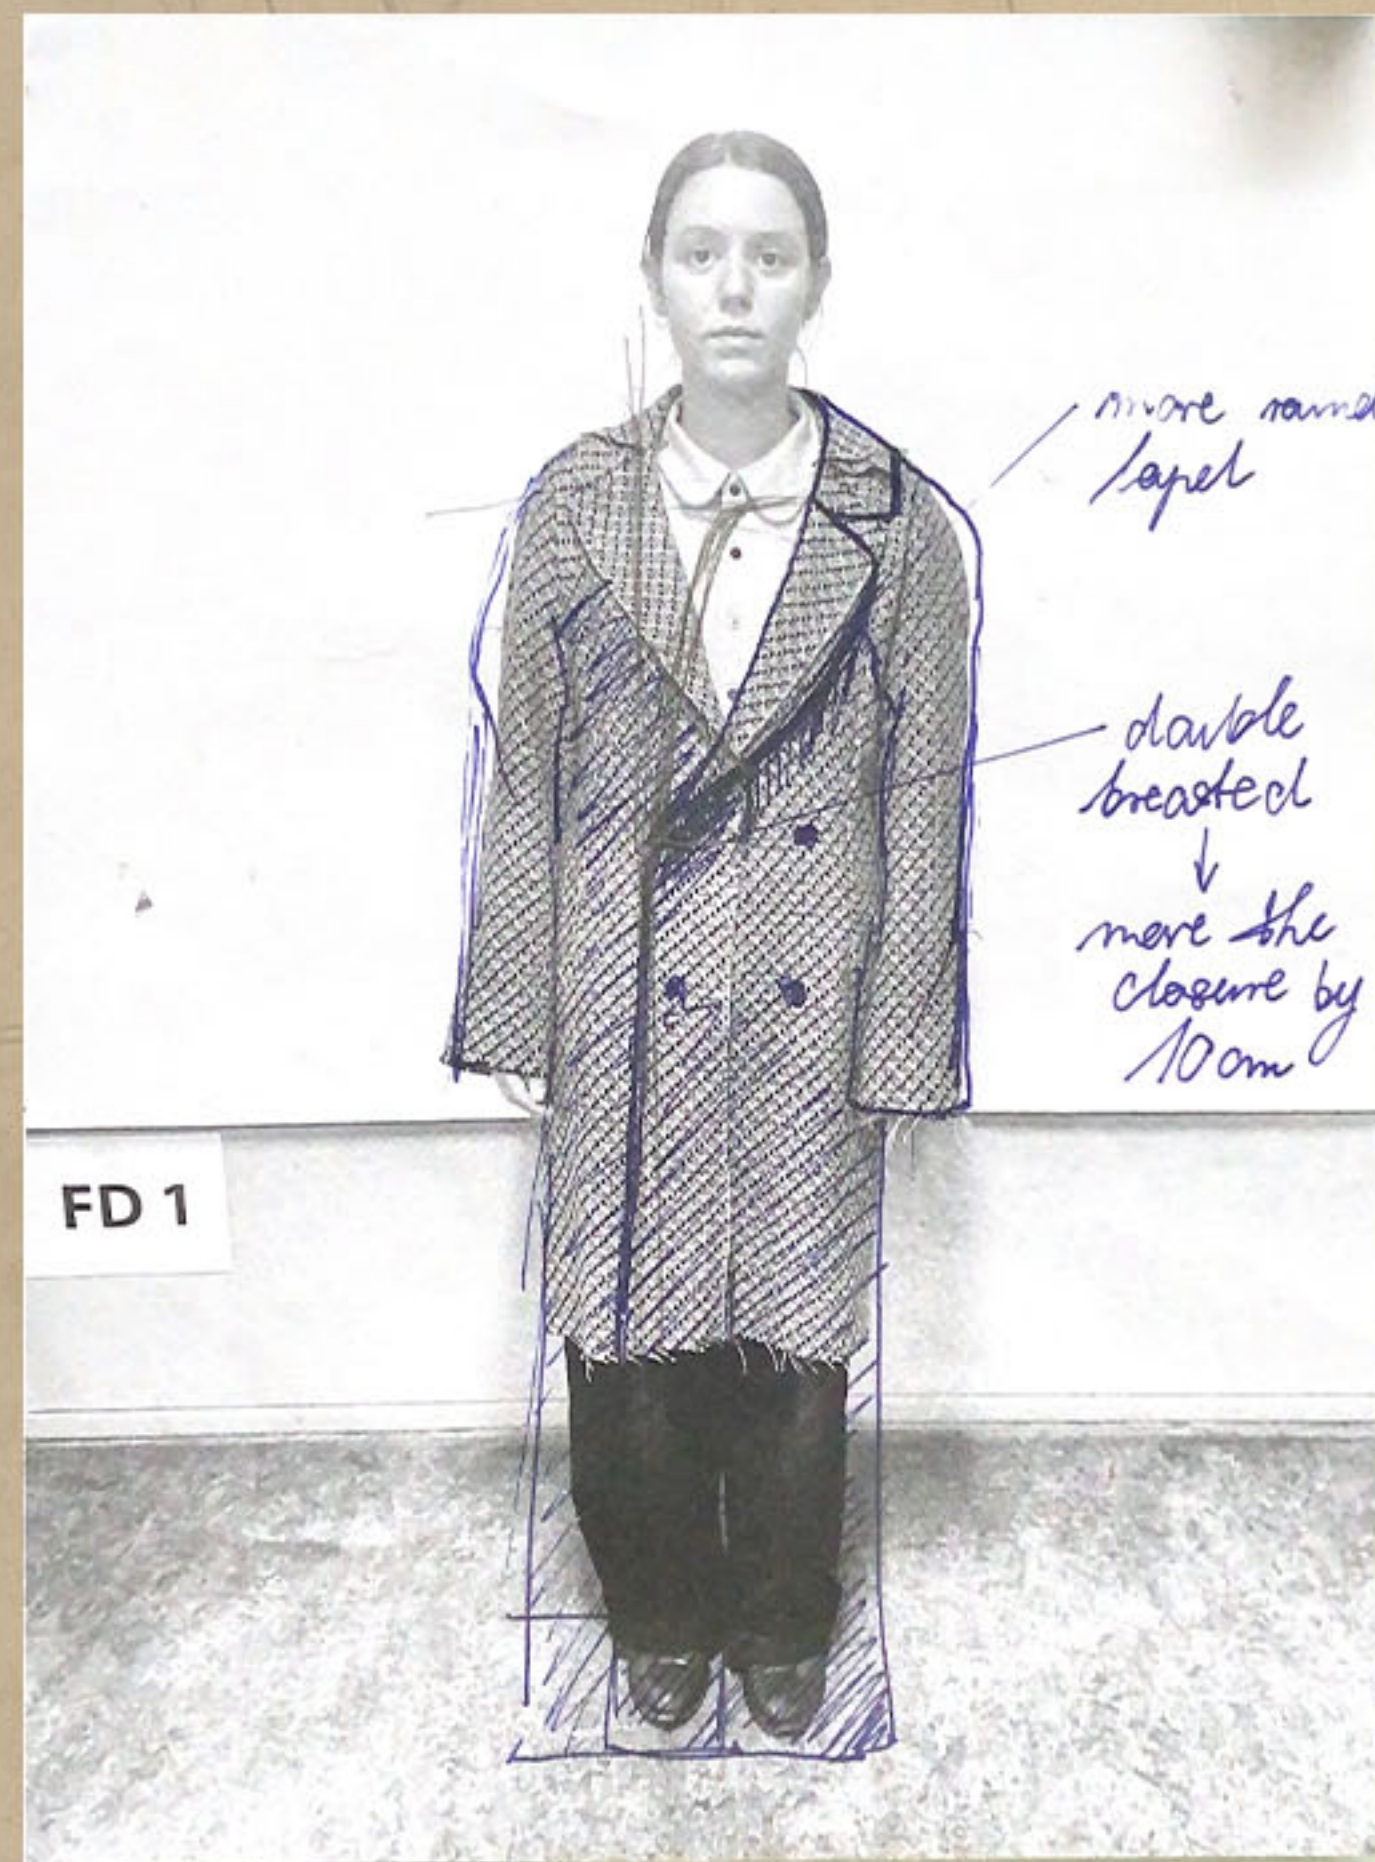 more round
lapel
double
breasted
↓
move the
closure by
10 cm
FD 1